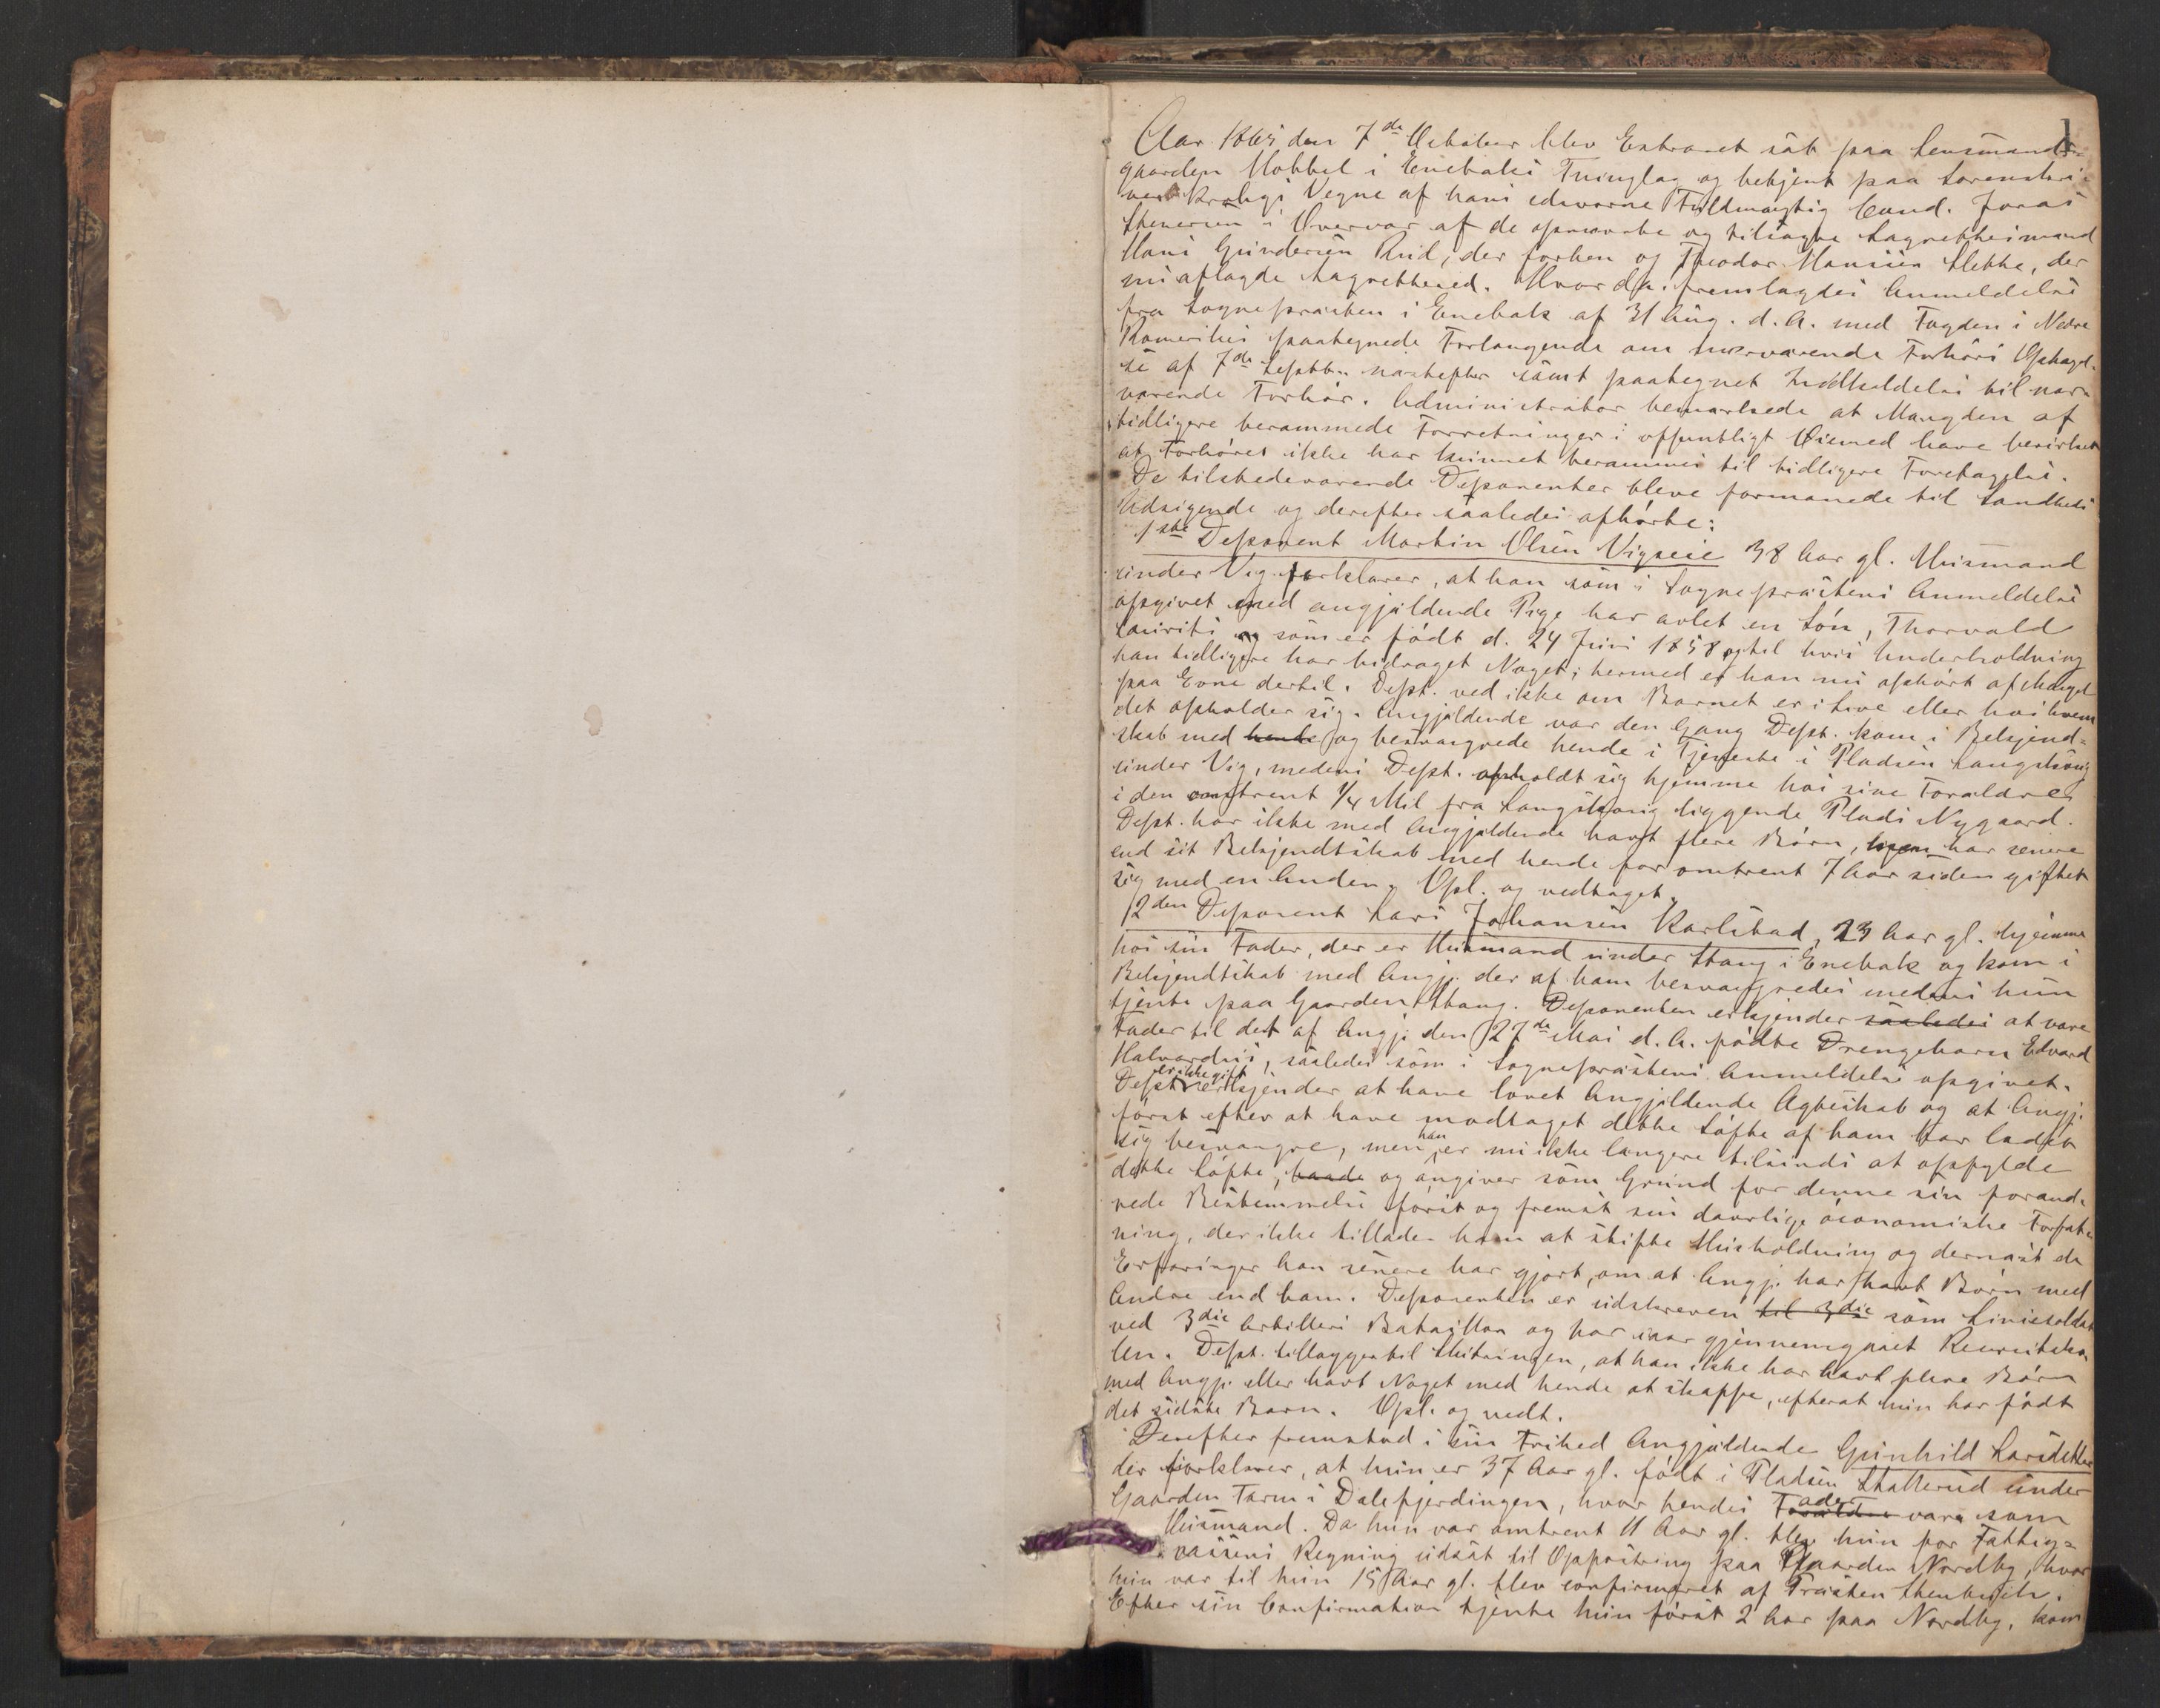 1
Aar 1865 den 7de Octobeer blev Extraret sat paa Lensmands-
gaarden Kobbel i Enebaks Thinglag og betjent paa Sorenskri-
ver Kroghs Vegne af hans edsvorne Fuldmægtig Cand. Jonas
i Overvær af de opnævnte og tilsagte Lagrettesmænd
Hans Gundersen Rud, der forhen og Theodor Hansen Klekke, der
nu aflagde Lagretteed. Hvor da fremlagdes Anmeldelse
fra Sognepræsten i Enebak af 31 Aug. d. A. med Fogden i Nedre
Romerikes paategnede Forlangende om nærværende Forhørs Optagel-
se af 7de Septbr. næstefter samt paategnet Indkaldelse til nær-
værende Forhør. Administrator bemærkede at Mængden af
tidligere berammede Forretninger i offentligt Øiemed have bevirket
at Forhøret ikke har kunnet berammes til tidligere Foretagelse.
De tilstedeværende Deponenter bleve formanede til Sandheds
Udsigende og derefter saaledes afhørte:
1ste Deponent Martin Olsen Vigseie 38 Aar gl. Huusmand
under Vig forklarer, at han som i Sognepræstens Anmeldelse
opgivet med angjældende Pige har avlet en Søn, Thorvald
Lauritz som er født d. 24 Juni 1858 og til hvis Underholdning
han tidligere har bidraget Noget; hermed er han nu ophørt af Mangel
paa Evne dertil. Dept. ved ikke om Barnet er i Live eller hos hvem
det opholder sig. Angjældende var den Gang Dept. kom i Bekjend-
skab med hende og besvangrede hende i Tjeneste i Pladsen Langskoug
under Vig, medens Dept. opholdt sig hjemme hos sine Forældre
i den omtrent 1/4 Mil fra Langskoug liggende Plads Nygaard.
Dept. har ikke med Angjældende havt flere Børn, har senere
end sit Bekjendtskab med hende for omtrent 7 Aar siden giftet
sig med en Anden. Opl. og vedtaget.
2den Deponent Lars Johansen Karlstad, 23 Aar gl. hjemme
hos sin Fader, der er Huusmand under Stang i Enebak og kom i
Bekjendtskab med Angj. der af ham besvangredes medens hun
tjente paa Gaarden Stang. Deponenten erkjender saaledes at være
Fader til det af Angj. den 27de Mai d. A. fødte Drengebarn Edvard
Halvardus, saaledes som i Sognepræstens Anmeldelse opgivet.
Dept. er ikke gift erkjender at have lovet Angjældende Ægteskab og at Angj.
først efter at have modtaget dette Løfte af ham har ladet
sig besvangre, men han er nu ikke længere tilsinds at opfylde
dette Løfte, baade og angiver som Grund for denne sin forand-
rede Bestemmelse først og fremst sin daarlige øconomiske Forfat-
ning, der ikke tillader ham at stifte Huusholdning og dernæst de
Erfaringer han senere har gjort, om at Angj. har havt Børn med
Andre end ham. Deponenten er udskreven til 3die som Liniesoldat
ved 3die Artilleri Bataillon og har iaar gjennemgaaet Recrutsko-
len. Dept. tillægger til Slutningen, at han ikke har havt flere Børn
med Angj. eller havt Noget med hende at skaffe, efterat hun har født
det sidste Barn. Opl. og vedt.
Derefter fremstod i sin Frihed Angjældende Gunhild Larsdatter
der forklarer, at hun er 37 Aar gl. født i Pladsen Skallerud under
Gaarden Tarm i Dalefjerdingen, hvor hendes Forældre Fader vare som
Huusmand. Da hun var omtrent 11 Aar gl. blev hun for Fattig-
væsenets Regning udsat til Opfostring paa Gaarden Nordby, hvor
hun var til hun 15 Aar gl. blev confirmeret af Præsten Stenbuch.
Efter sin Confirmation tjente hun først 2 Aar paa Nordby, kom